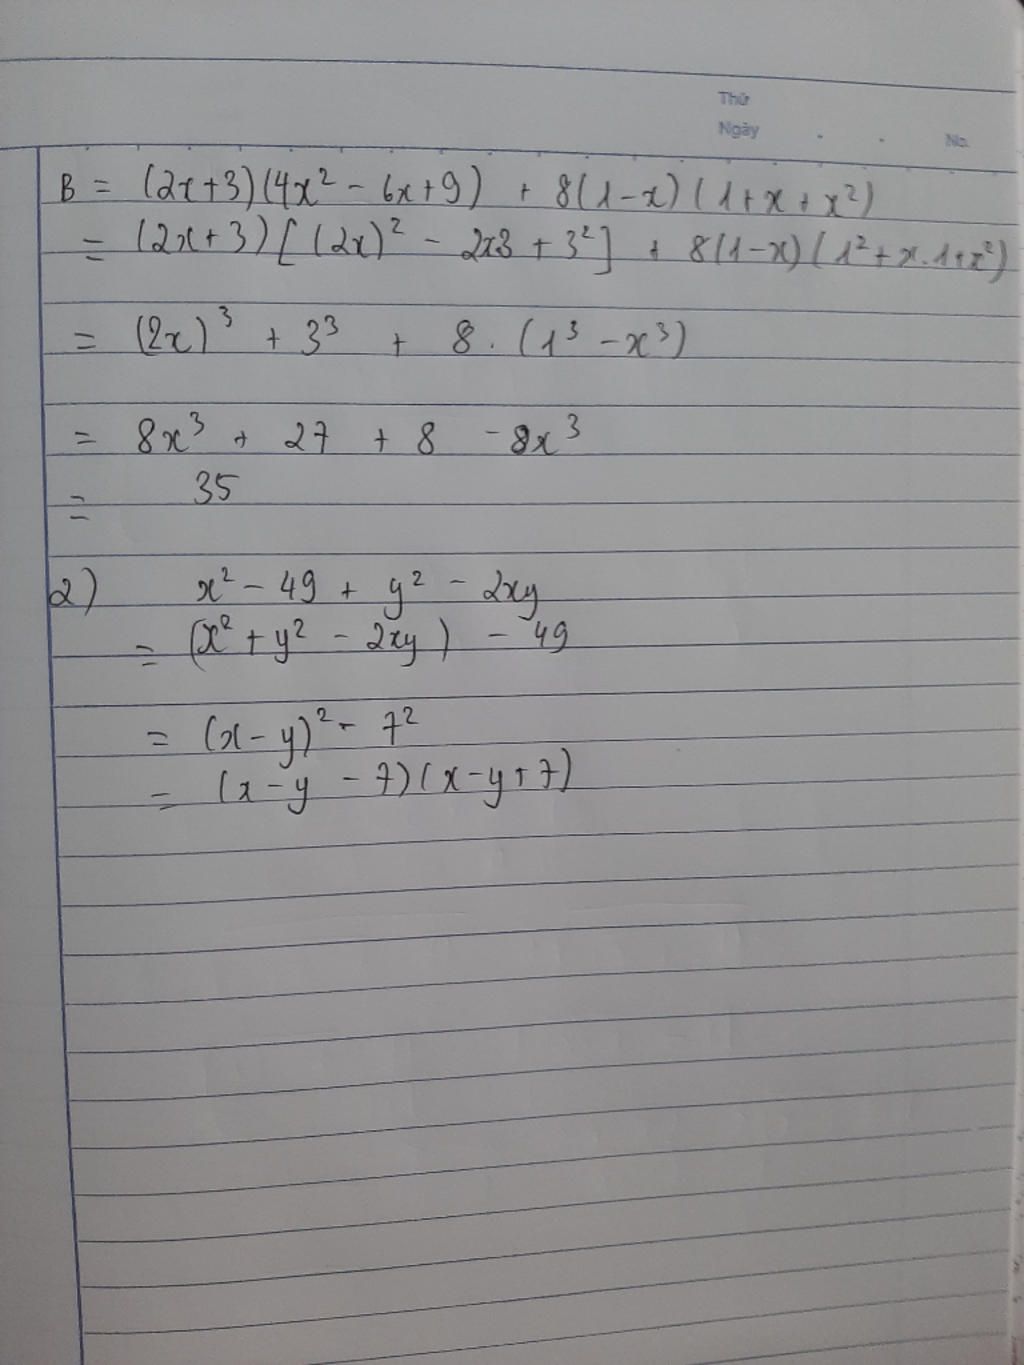 Thứ
Ngày . . No.
B = (2x+3)(4x² - 6x+9) + 8(1-x)(1+x+x²)
= (2x+3)[(2x)² - 2x3 + 3²] + 8(1-x)(1²+x.1+x²)
= (2x)³ + 3³ + 8.(1³ - x³)
= 8x³ + 27 + 8 - 8x³
= 35
2) x² - 49 + y² - 2xy
= (x² + y² - 2xy) - 49
= (x - y)² - 7²
= (x - y - 7)(x - y + 7)